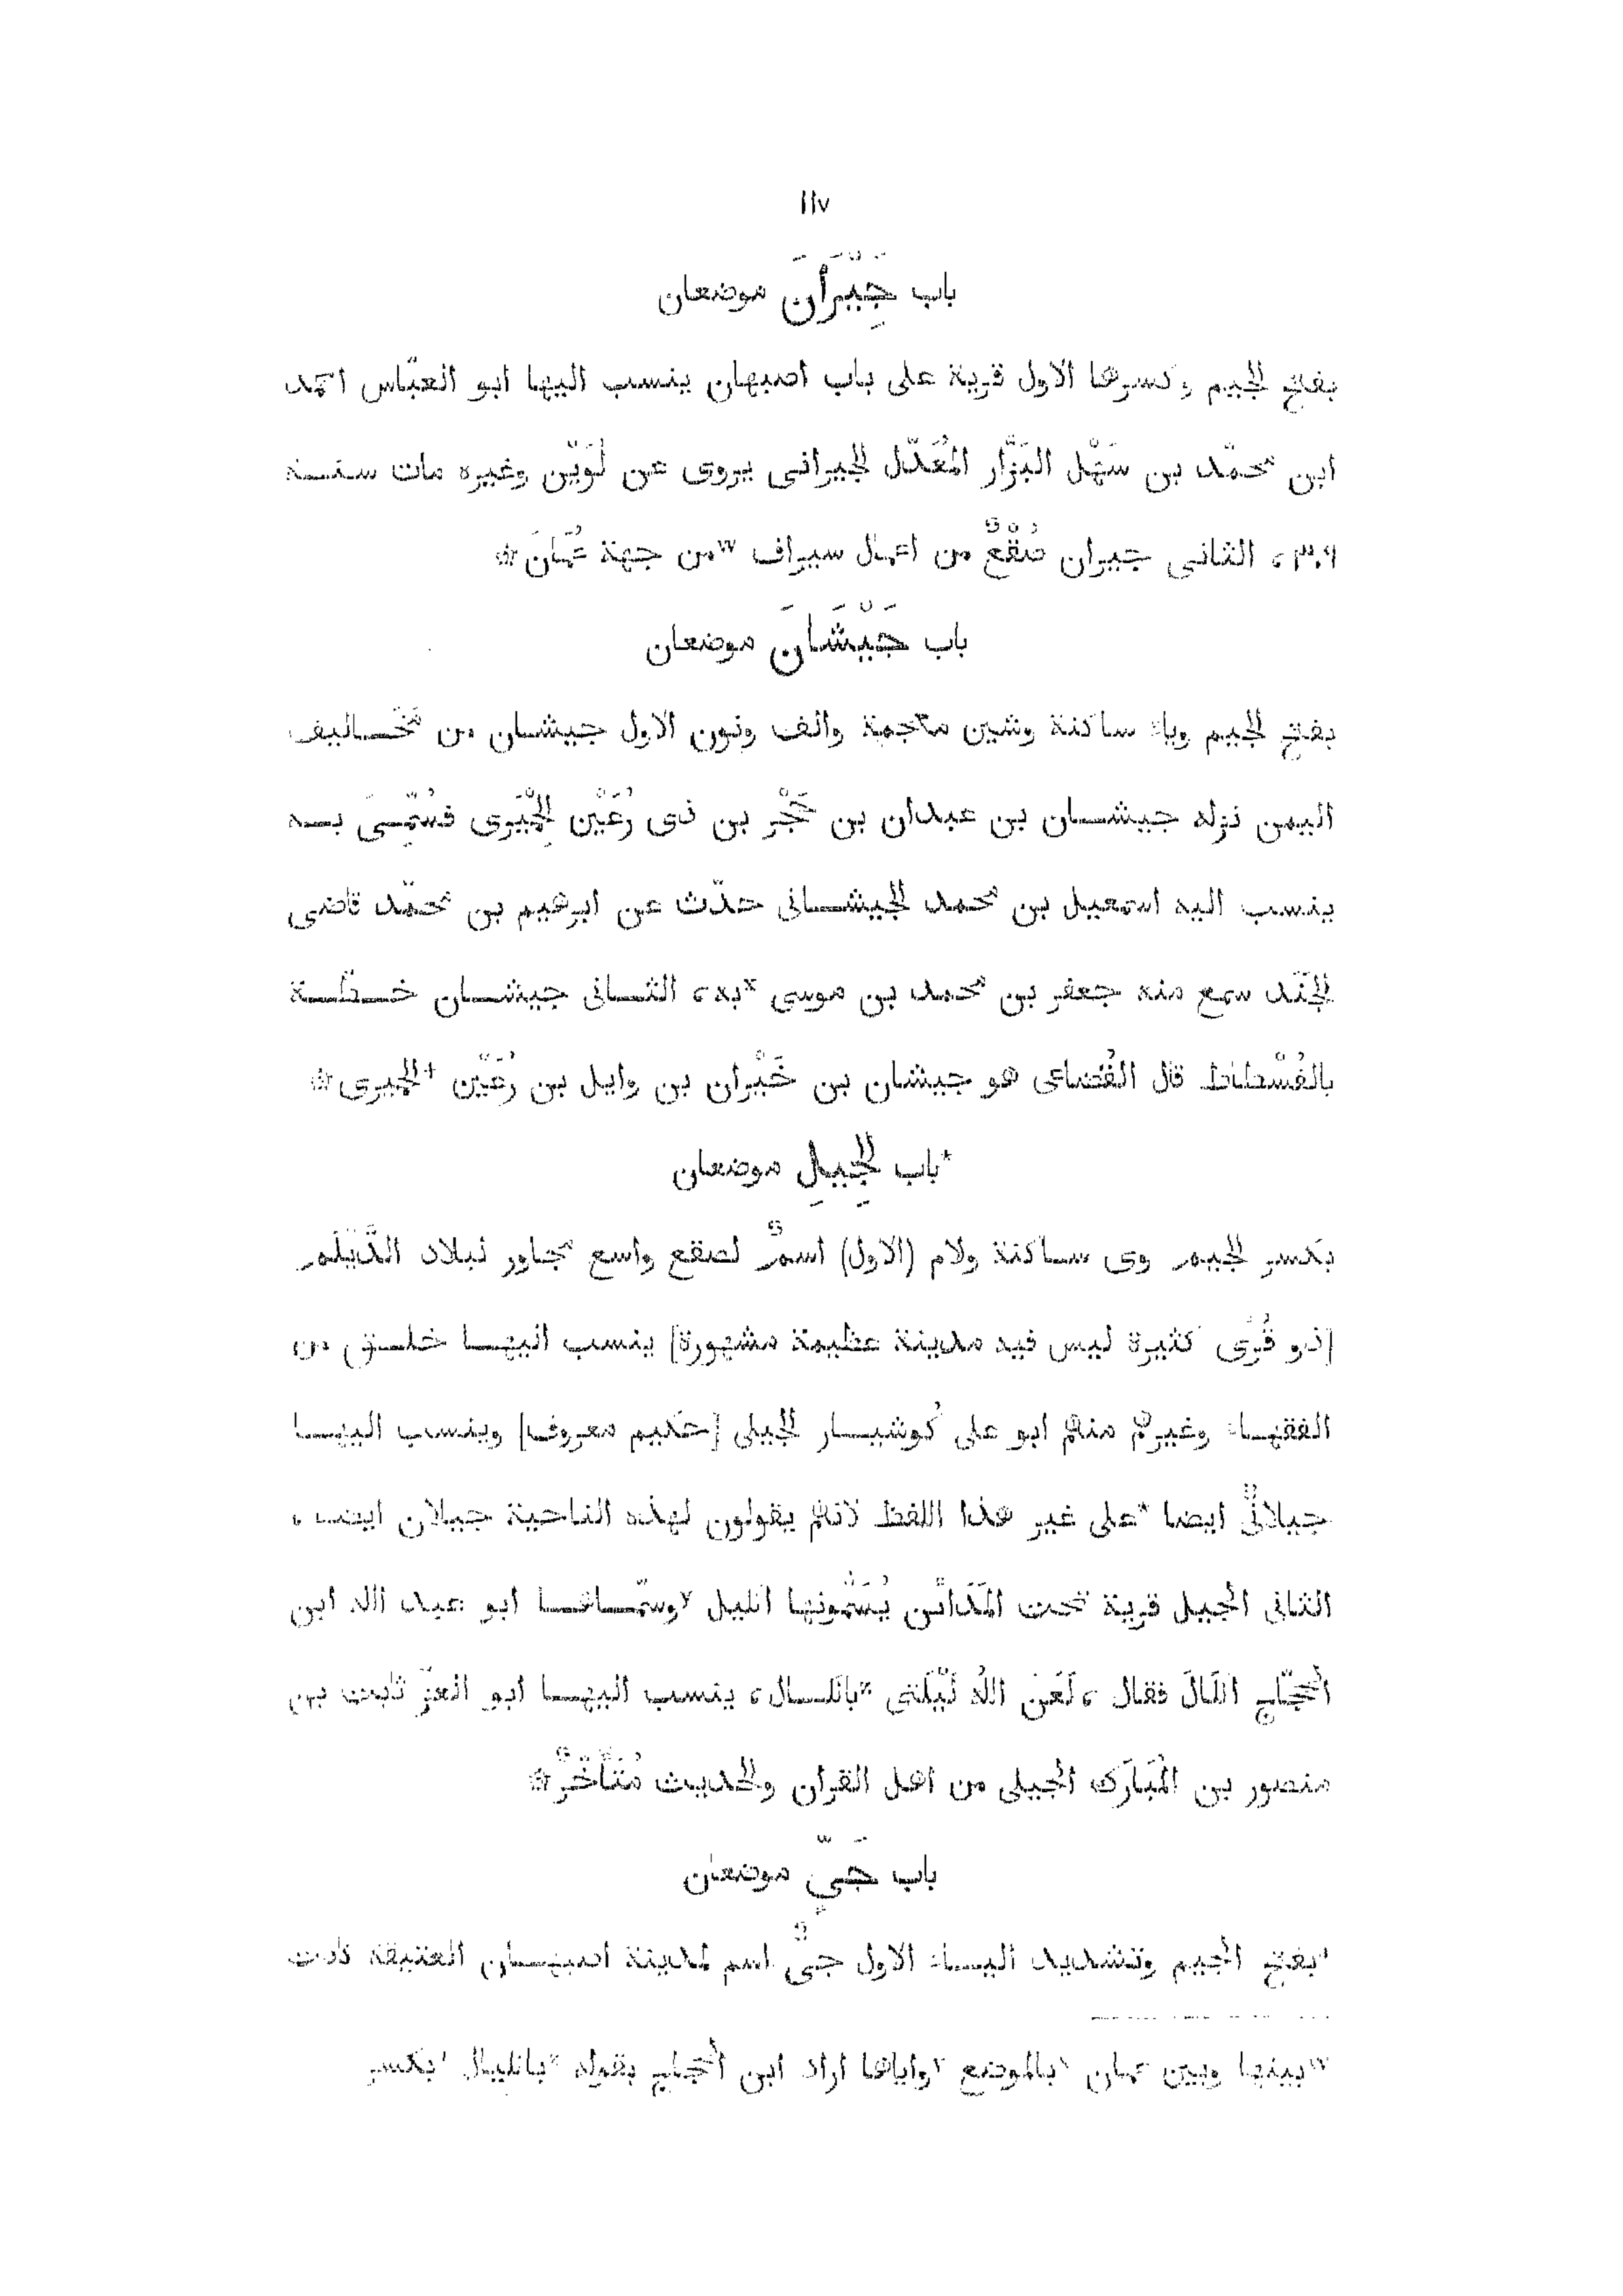 ١١٧
باب جَِيْرَانَ موضعان
بفتح الجيم وكسرها الاول قرية على باب اصبهان ينسب اليها ابو العبّاس احمد
ابن محمّد بن سَهْل البَزَّار المُعَدَّل الجيرانى يروى عن لُوَيْن وغيره مات سنة
٣٠٦، الثانى جيران صُقْعٌ من اعمال سيراف ʷمن جهة عُمَانَ ۞
باب جَيْشَانَ موضعان
بفتح الجيم وياء ساكنة وشين معجمة والف ونون الاول جيشان من مَخَاليف
اليمن نزله جيشان بن عبدان بن حَجْر بن ذى رُعَيْن الحِمْيَرى فسُمِّىَ به
ينسب اليه اسمعيل بن محمد الجيشانى حدّث عن ابرهيم بن محمّد قاضى
الجَنَد سمع منه جعفر بن محمد بن موسى ˣبه، الثانى جيشان خطّة
بالفُسْطاط قال القُضاعى هو جيشان بن خَيْران بن وايل بن رُعَيْن †الحميرى ۞
*باب الجِيلِ موضعان
بكسر الجيم وى ساكنة ولام (الاول) اسمٌ لصقع واسع مجاور لبلاد الدَّيْلَم
[ذو قُرًى كثيرة ليس فيه مدينة عظيمة مشهورة] ينسب اليها خلق من
الفقهاء وغيرهم منهم ابو على كُوشيار الجيلى [حكيم معروف] وينسب اليها
جيلانىٌّ ايضا *على غير هذا اللفظ لانهم يقولون لهذه الناحية جيلان ايضا،
الثانى الجيل قرية تحت المَدَائن يُسَمُّونها الكيل ʸوسمّاها ابو عبد الله ابن
الحجّاج الكَالَ فقال، لَعَنَ اللهُ لَيْلَتى ᶻبالكال، ينسب اليها ابو العزّ ثابت بن
منصور بن المُبَارَك الجيلى من اهل القران والحديث مُتَأَخِّرٌ ۞
باب جَىٍّ موضعان
ᵃبفتح الجيم وتشديد الياء الاول جىٌّ اسم لمدينة اصبهان العتيقة كانت
ʷبينها وبين عمان ˣبالموضع ʸواياها اراد ابن الحجاج بقوله ᶻبالكيال ᵃبكسر